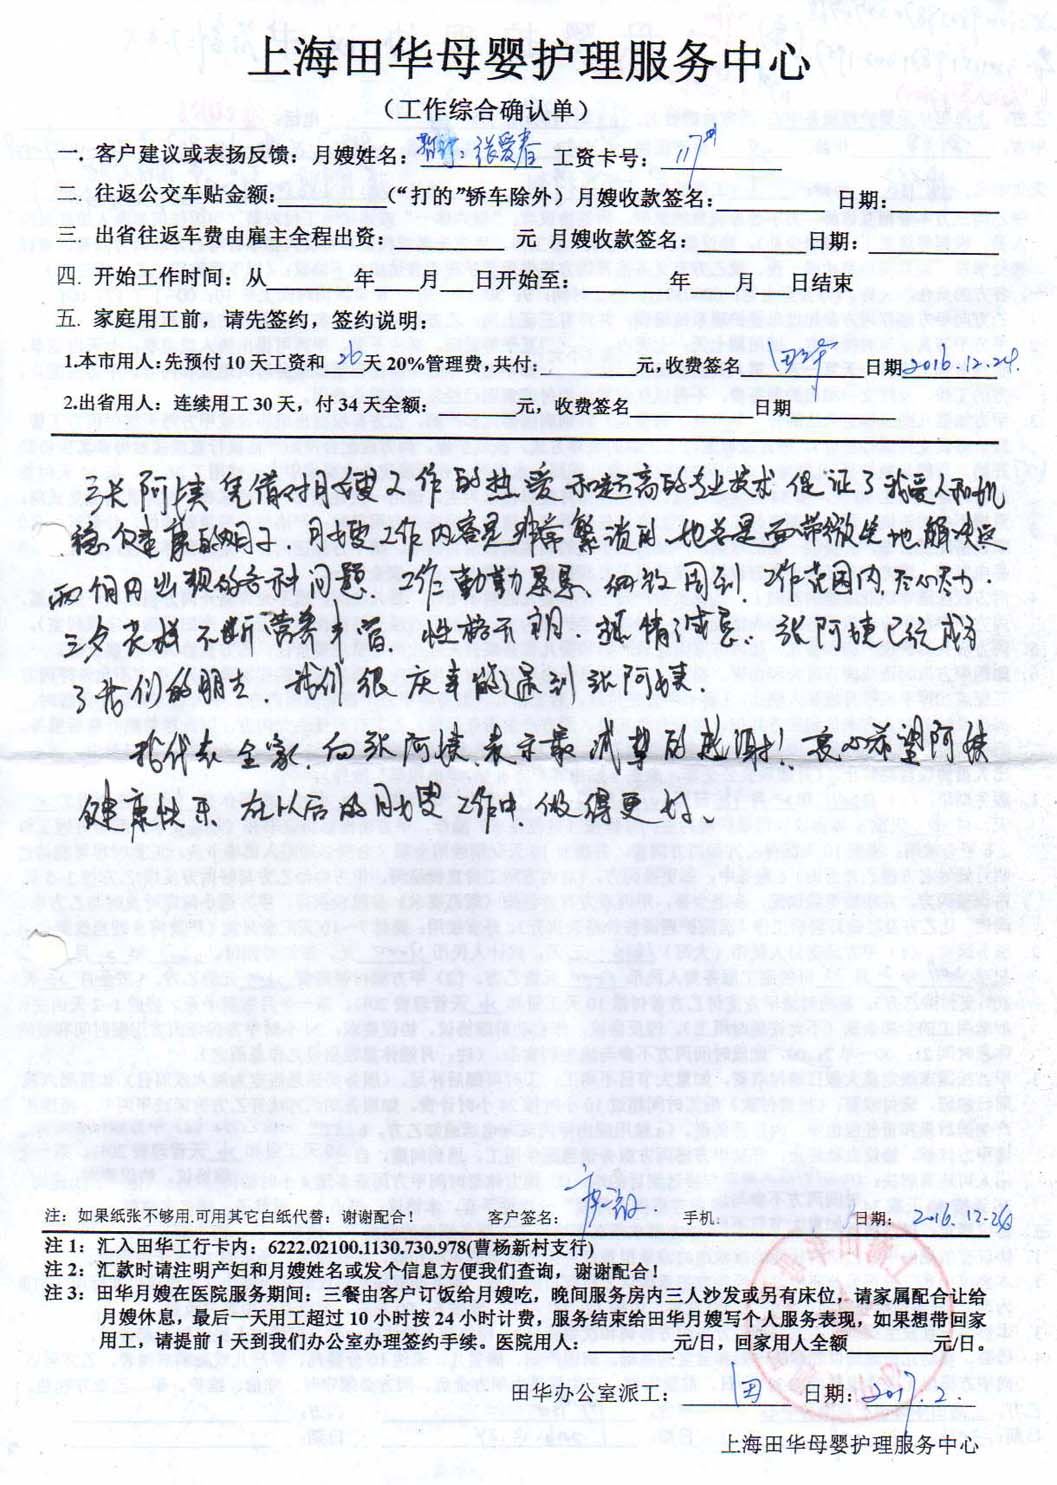 上海田华母婴护理服务中心
(工作综合确认单)
一. 客户建议或表扬反馈：月嫂姓名： 张爱春 工资卡号： 117#
二. 往返公交车贴金额: (“打的”轿车除外) 月嫂收款签名: 日期:
三. 出省往返车费由雇主全程出资: 元 月嫂收款签名: 日期:
四. 开始工作时间：从 年 月 日开始至: 年 月 日结束
五. 家庭用工前，请先签约，签约说明：
1.本市用人:先预付10天工资和 26 天20%管理费,共付: 元,收费签名 田华 日期 2016.12.24.
2.出省用人：连续用工30天，付34天全额： 元，收费签名 日期
张阿姨凭借对月嫂工作的热爱和超高的专业技术 保证了我爱人和
健康的月子. 月嫂工作内容是非常繁琐的, 她总是面带微笑地解决这
两个月内出现的各种问题. 工作勤勤恳恳、细致周到. 工作范围内尽心尽力.
三点 花样不断 营养 . 性格开朗. 热情 . 张阿姨已经成为
了我们的朋友 我们很庆幸能遇到张阿姨
我代表全家向张阿姨表示最诚挚的感谢! 衷心希望阿姨
健康快乐. 在以后的月嫂工作中, 做得更好、
注：如果纸张不够用.可用其它白纸代替：谢谢配合！ 客户签名: 手机: 日期: 2016.12.26
注1：汇入田华工行卡内：6222.02100.1130.730.978(曹杨新村支行)
注2：汇款时请注明产妇和月嫂姓名或发个信息方便我们查询，谢谢配合！
注3：田华月嫂在医院服务期间：三餐由客户订饭给月嫂吃，晚间服务房内三人沙发或另有床位，请家属配合让给
月嫂休息，最后一天用工超过10小时按24小时计费，服务结束给田华月嫂写个人服务表现，如果想带回家
用工，请提前1天到我们办公室办理签约手续。医院用人: 元/日，回家用人全额 元/日。
田华办公室派工: 田 日期: 2017.2
上海田华母婴护理服务中心